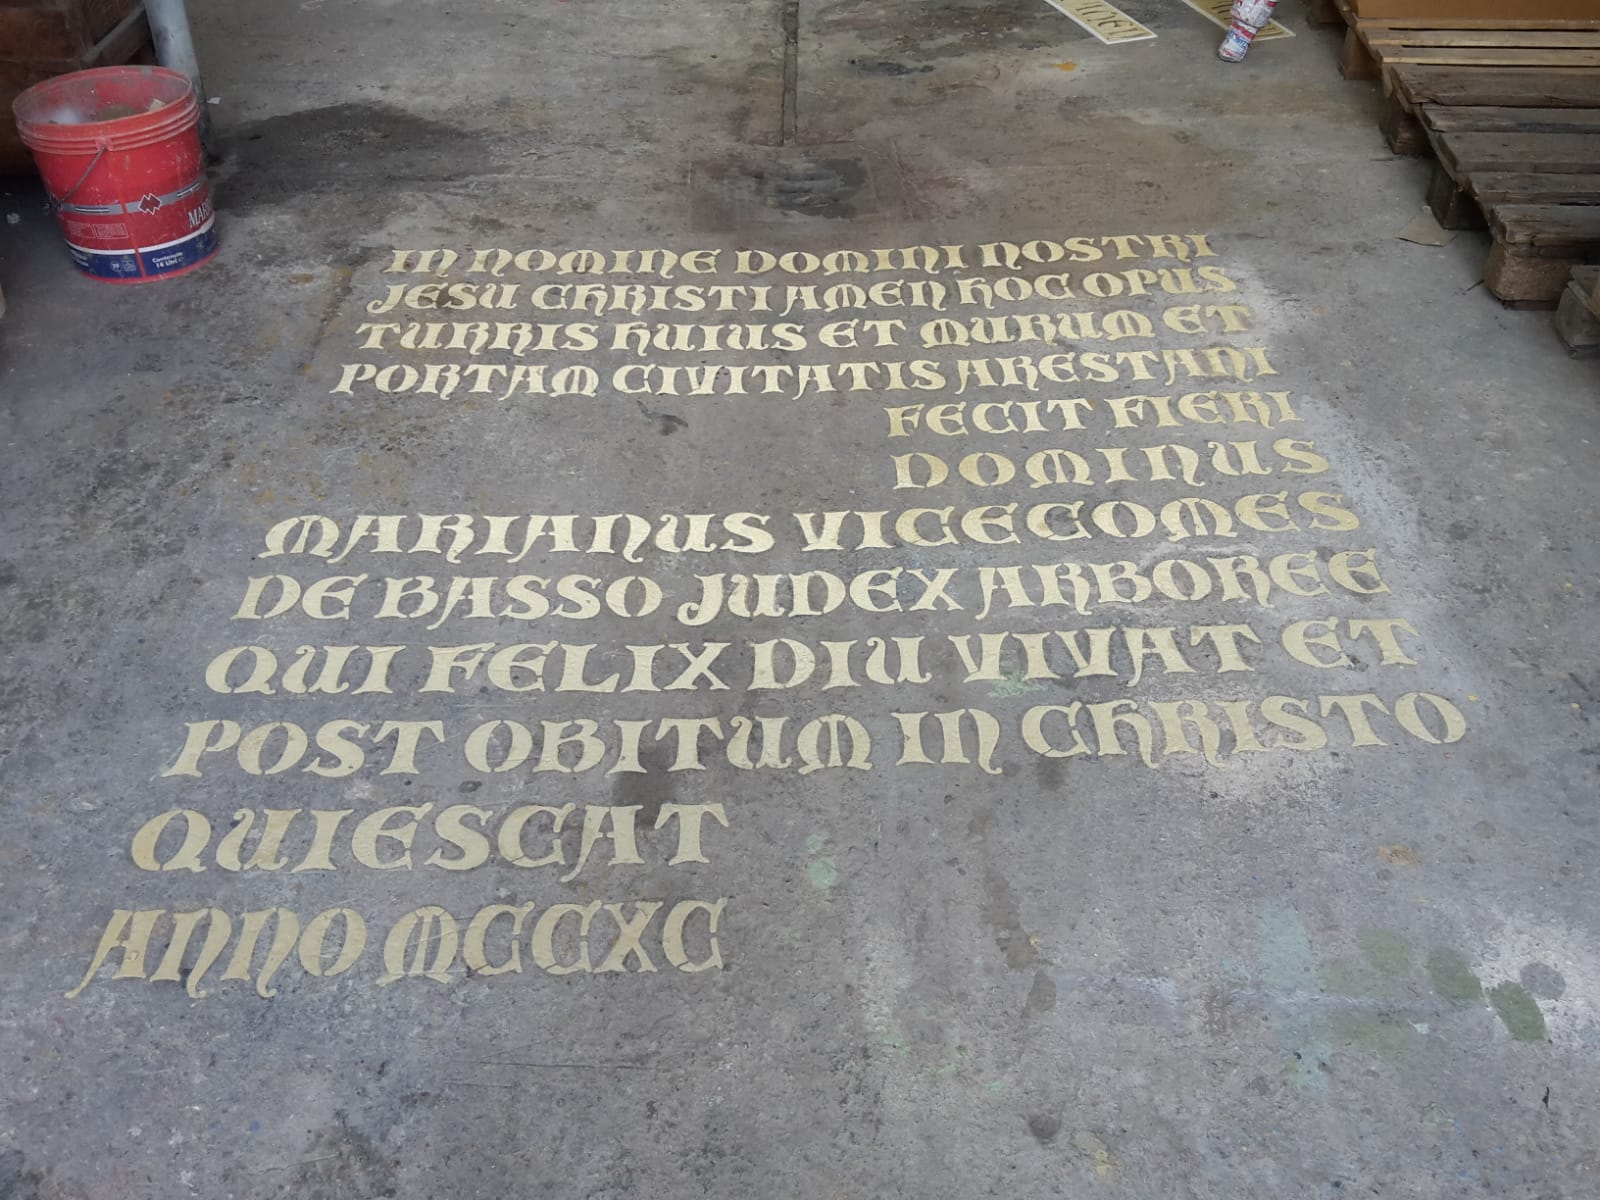 IN NOMINE DOMINI NOSTRI
JESU CHRISTI AMEN HOC OPUS
TURRIS HUIUS ET MURUM ET
PORTAM CIVITATIS ARESTANI
FECIT FIERI
DOMINUS
MARIANUS VICECOMES
DE BASSO JUDEX ARBOREE
QUI FELIX DIU VIVAT ET
POST OBITUM IN CHRISTO
QUIESCAT
ANNO MCCXC
Contenuto
14 Litri